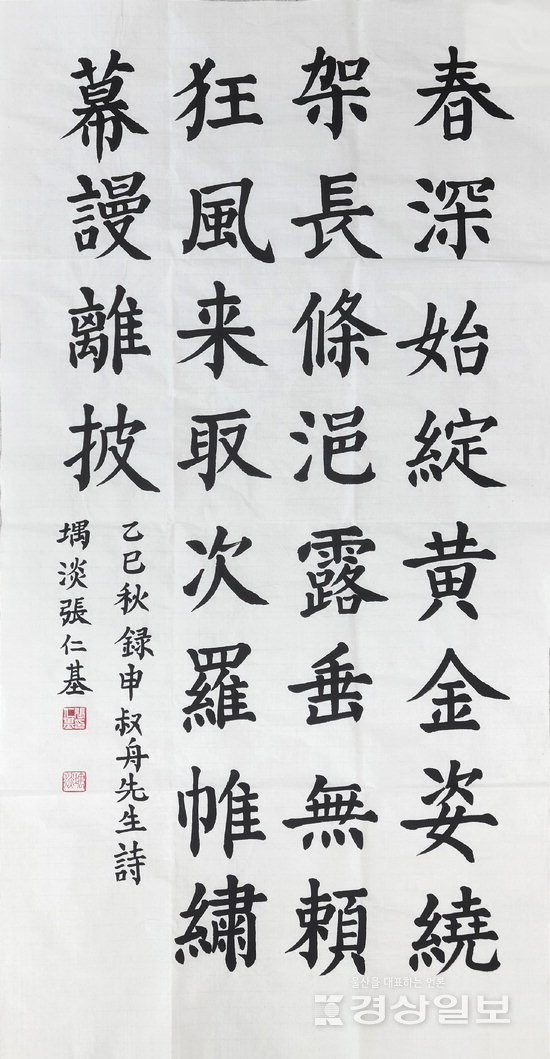 春深始綻黄金姿繞
架長條浥露垂無賴
狂風来取次羅帷繡
幕謾離披
乙巳秋録申叔舟先生詩
堣淡張仁基
울산을 대표하는 언론
경상일보